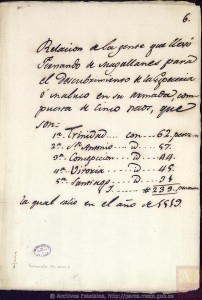 6.
Relacion de la gente que llevó
Fernando de Magallanes para
el Descubrimiento de la Especeria
ó maluco en su armada com-
puesta de cinco naos, que
son:
1ª. Trinidad con 62. personas
2ª. Sn. Antonio D. 57.
3ª. Concepcion D. 44.
4ª. Vitoria D. 45.
5ª. Santiago D. 31
# 239. personas
la qual salio en el año de 1519.
© Archivos Estatales, http://pares.mecd.gob.es